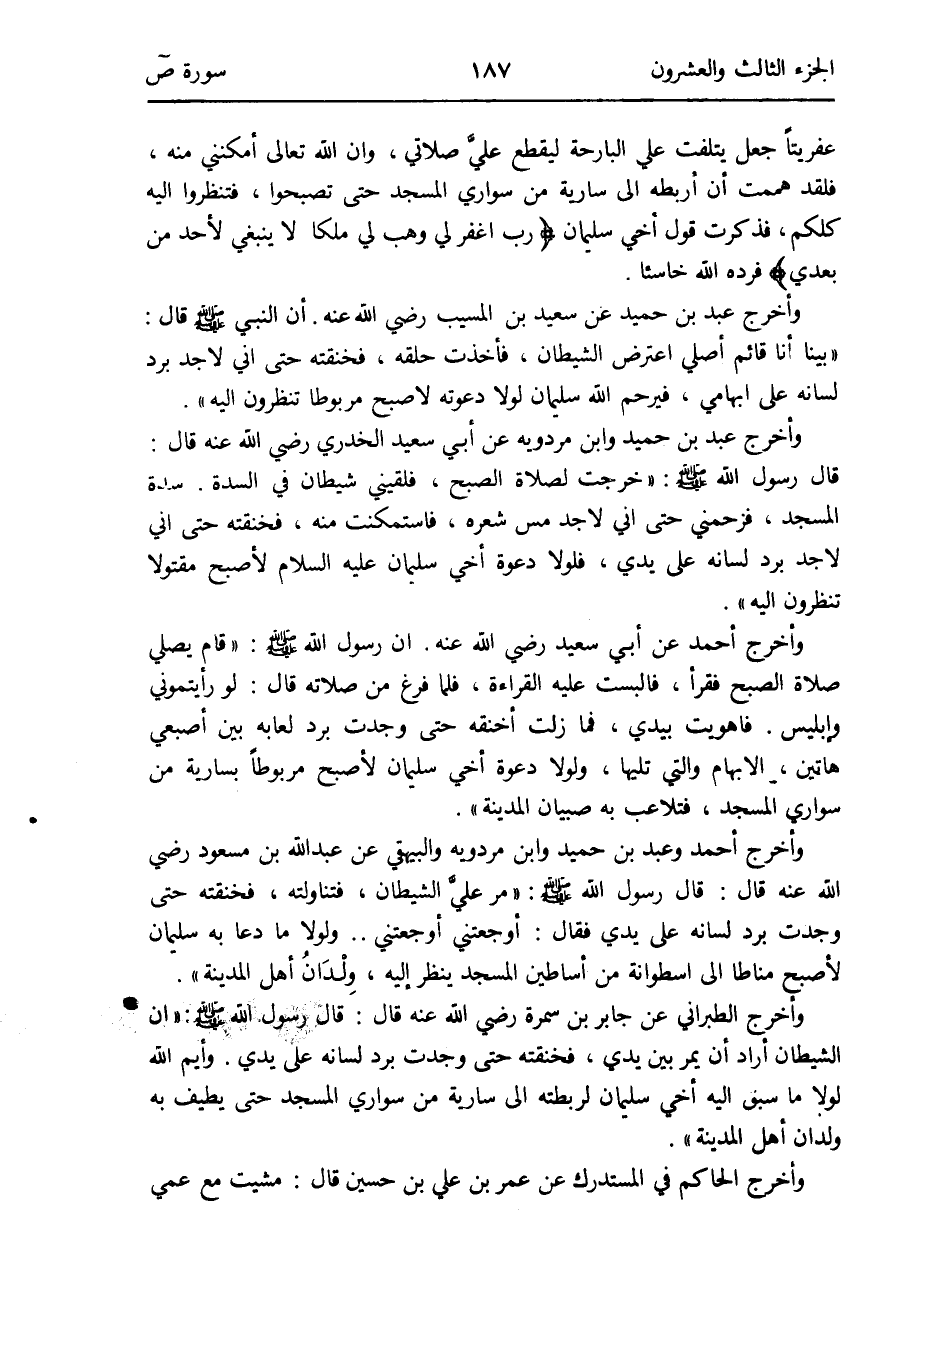 الجزء الثالث والعشرون ١٨٧ سورة صۤ
عفريتاً جعل يتلفت علي البارحة ليقطع عليَّ صلاتي ، وان الله تعالى أمكنني منه ،
فلقد هممت أن أربطه الى سارية من سواري المسجد حتى تصبحوا ، فتنظروا اليه
كلكم، فذكرت قول أخي سليمان ﴿ رب اغفر لي وهب لي ملكا لا ينبغي لأحد من
بعدي﴾ فرده الله خاسئا .
وأخرج عبد بن حميد عن سعيد بن المسيب رضي الله عنه. أن النبي ﷺ قال :
«بينا أنا قائم أصلي اعترض الشيطان ، فأخذت حلقه ، فخنقته حتى اني لاجد برد
لسانه على ابهامي ، فيرحم الله سليمان لولا دعوته لاصبح مربوطا تنظرون اليه» .
وأخرج عبد بن حميد وابن مردويه عن أبي سعيد الخدري رضي الله عنه قال :
قال رسول الله ﷺ: «خرجت لصلاة الصبح ، فلقيني شيطان في السدة . سدة
المسجد ، فزحمني حتى اني لاجد مس شعره ، فاستمكنت منه ، فخنقته حتى اني
لاجد برد لسانه على يدي ، فلولا دعوة أخي سليمان عليه السلام لأصبح مقتولا
تنظرون اليه» .
وأخرج أحمد عن أبي سعيد رضي الله عنه. ان رسول الله ﷺ : «قام يصلي
صلاة الصبح فقرأ ، فالبست عليه القراءة ، فلما فرغ من صلاته قال : لو رأيتموني
وإبليس . فاهويت بيدي ، فما زلت أخنقه حتى وجدت برد لعابه بين أصبعي
هاتين ، الابهام والتي تليها ، ولولا دعوة أخي سليمان لأصبح مربوطاً بسارية من
سواري المسجد ، فتلاعب به صبيان المدينة» .
وأخرج أحمد وعبد بن حميد وابن مردويه والبيهقي عن عبدالله بن مسعود رضي
الله عنه قال : قال رسول الله ﷺ: «مر عليَّ الشيطان ، فتناولته ، فخنقته حتى
وجدت برد لسانه على يدي فقال : أوجعتني أوجعتني .. ولولا ما دعا به سليمان
لأصبح مناطا الى اسطوانة من أساطين المسجد ينظر إليه ، وِلْدَانُ أهل المدينة» .
وأخرج الطبراني عن جابر بن سمرة رضي الله عنه قال : قال رسول الله ﷺ: «ان
الشيطان أراد أن يمر بين يدي ، فخنقته حتى وجدت برد لسانه على يدي . وأيم الله
لولا ما سبق اليه أخي سليمان لربطته الى سارية من سواري المسجد حتى يطيف به
ولدان أهل المدينة» .
وأخرج الحاكم في المستدرك عن عمر بن علي بن حسين قال : مشيت مع عمي